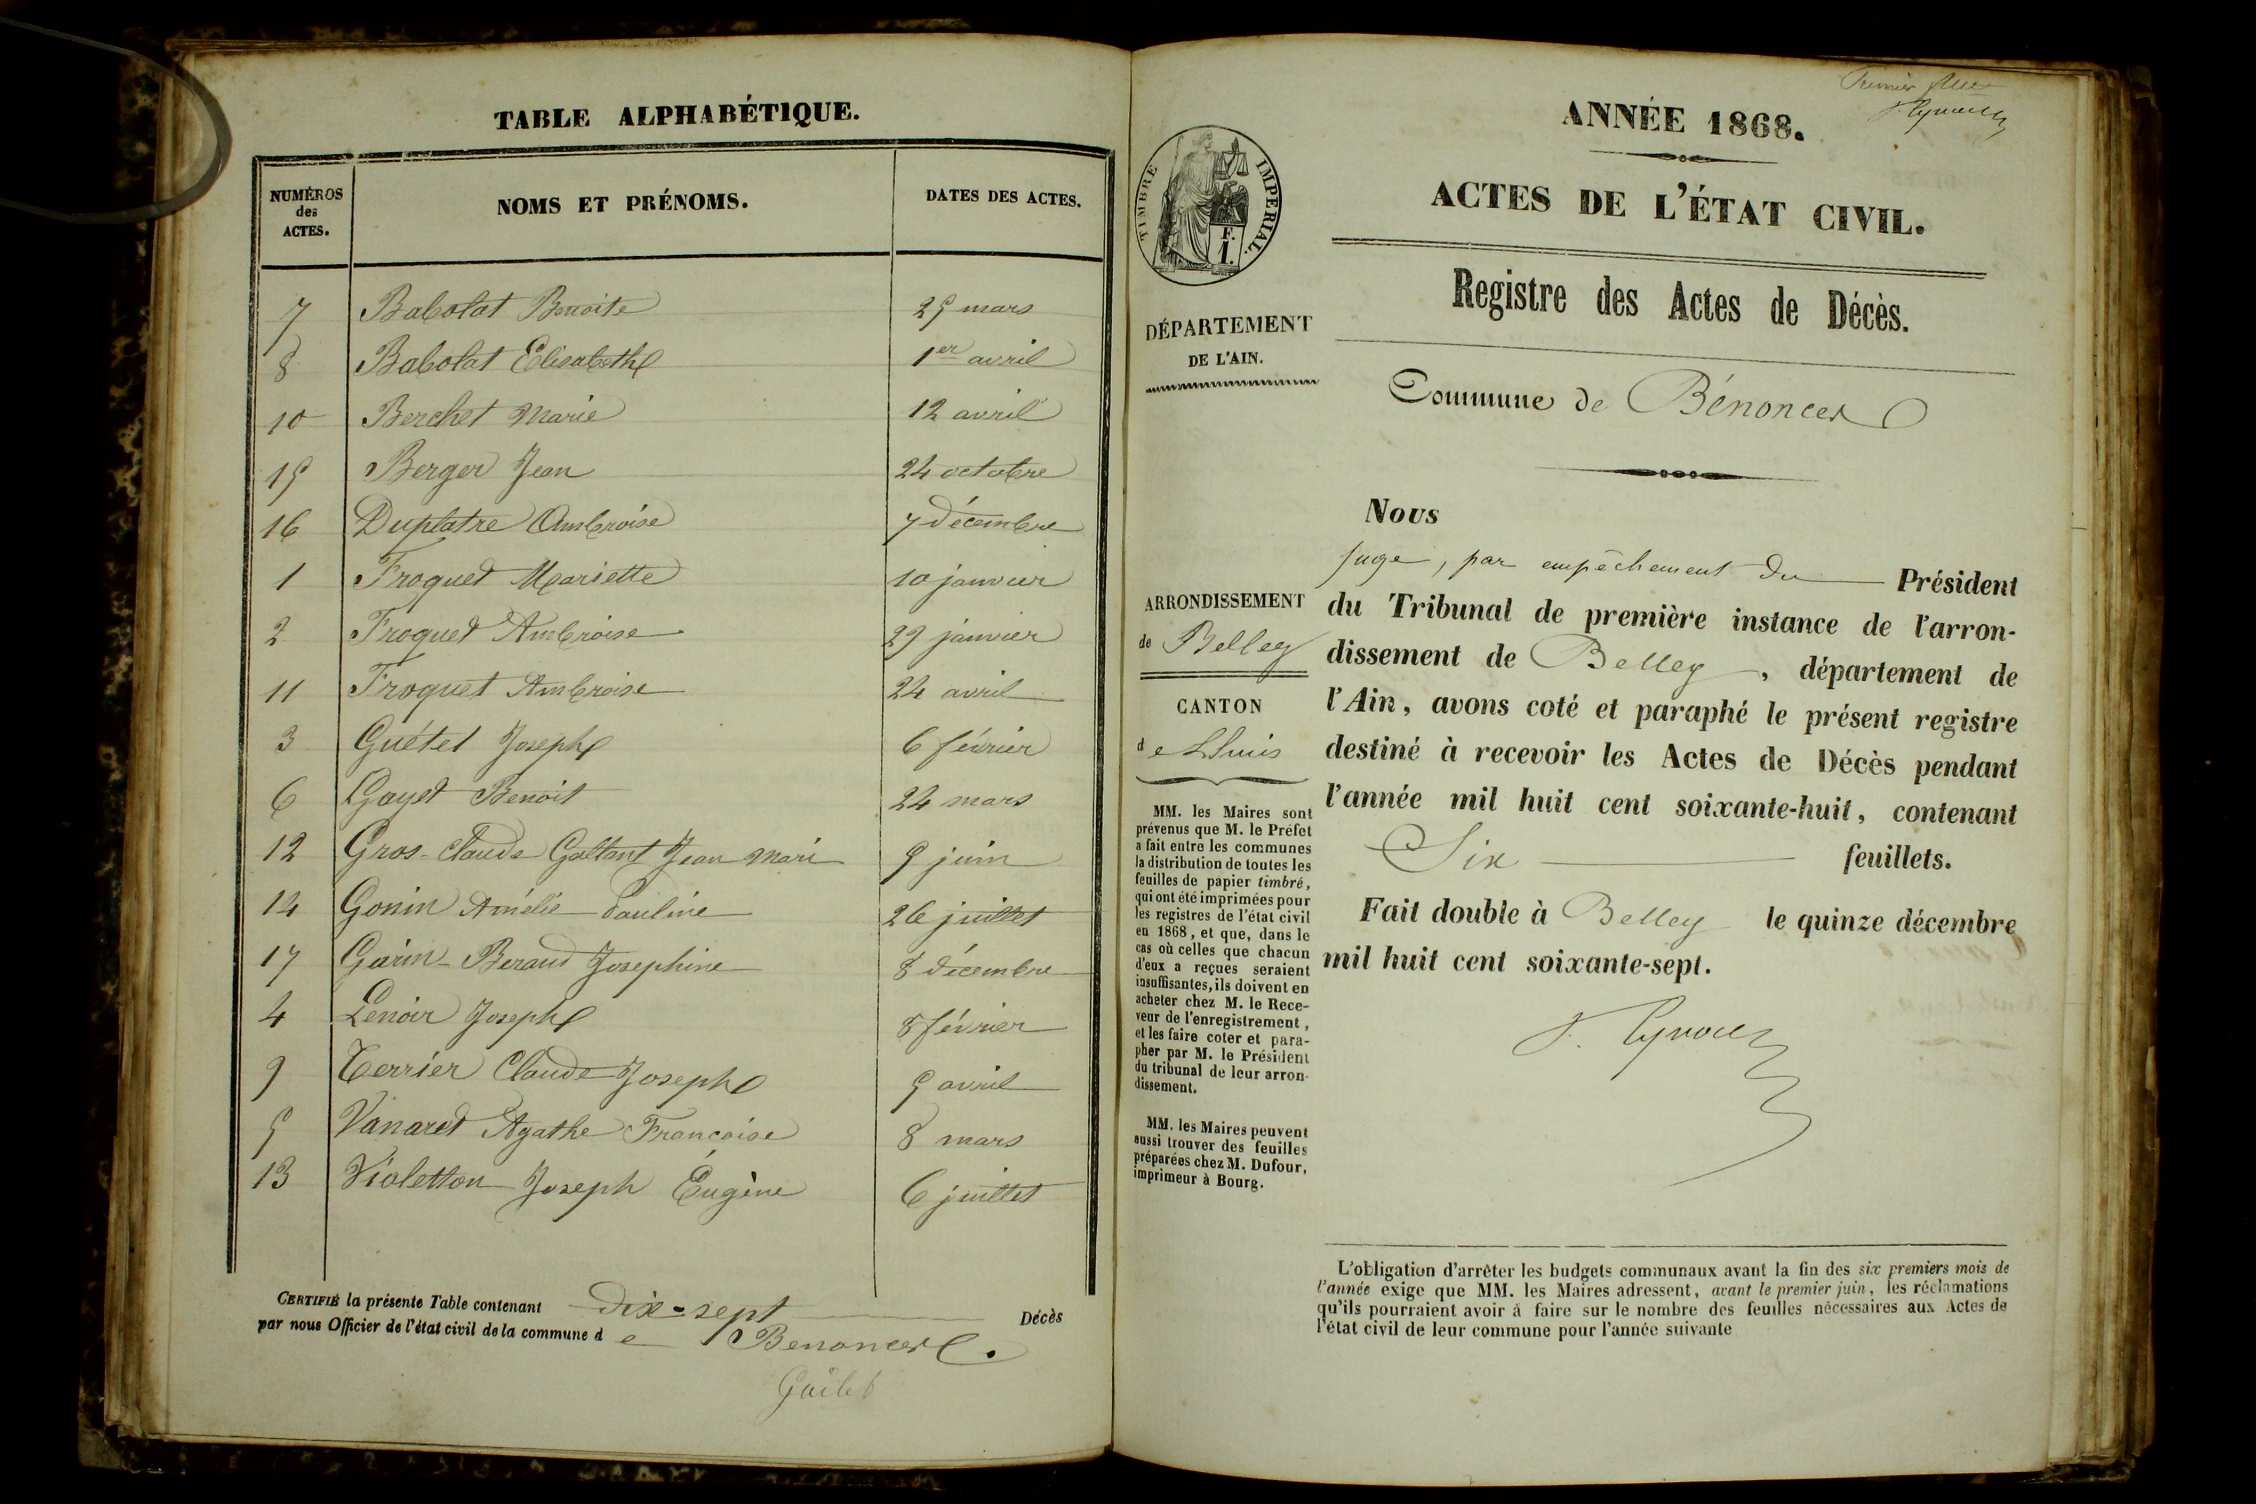 TABLE ALPHABÉTIQUE.
NUMÉROS des ACTES. NOMS ET PRÉNOMS. DATES DES ACTES.
7 Babolat Benoite 25 mars
8 Babolat Elisabeth 1er avril
10 Berchet Marie 12 avril
15 Berger Jean 24 octobre
16 Duplatre Ambroise 7 décembre
1 Froquet Mariette 10 janvier
2 Froquet Ambroise 29 janvier
11 Froquet Ambroise 24 avril
3 Guétet Joseph 6 février
6 Gayet Benoit 24 mars
12 Gros-Claude Galtant Jean Mari 5 juin
14 Gonin Amélie Pauline 26 juillet
17 Garin-Beraud Josephine 8 décembre
4 Lenoir Joseph 8 février
9 Terrier Claude Joseph 5 avril
5 Vanaret Agathe Francoise 8 mars
13 Violetton Joseph Eugène 6 juillet
CERTIFIÉ la présente Table contenant dix-sept Décès
par nous Officier de l'état civil de la commune de Benonces.
Premier
ANNÉE 1868.
ACTES DE L'ÉTAT CIVIL.
Registre des Actes de Décès.
TIMBRE IMPÉRIAL.
F.
1.
DÉPARTEMENT
DE L'AIN.
Commune de Bénonces
ARRONDISSEMENT
de Belley
CANTON
de Lhuis
MM. les Maires sont
prévenus que M. le Préfet
a fait entre les communes
la distribution de toutes les
feuilles de papier timbré,
qui ont été imprimées pour
les registres de l'état civil
en 1868, et que, dans le
cas où celles que chacun
d'eux a reçues seraient
insuffisantes, ils doivent en
acheter chez M. le Rece-
veur de l'enregistrement,
et les faire coter et para-
pher par M. le Président
du tribunal de leur arron-
dissement.
MM. les Maires peuvent
aussi trouver des feuilles
préparées chez M. Dufour,
imprimeur à Bourg.
Nous
juge, par empêchement du Président
du Tribunal de première instance de l'arron-
dissement de Belley, département de
l'Ain, avons coté et paraphé le présent registre
destiné à recevoir les Actes de Décès pendant
l'année mil huit cent soixante-huit, contenant
Six feuillets.
Fait double à Belley le quinze décembre
mil huit cent soixante-sept.
L'obligation d'arrêter les budgets communaux avant la fin des six premiers mois de
l'année exige que MM. les Maires adressent, avant le premier juin, les réclamations
qu'ils pourraient avoir à faire sur le nombre des feuilles nécessaires aux Actes de
l'état civil de leur commune pour l'année suivante